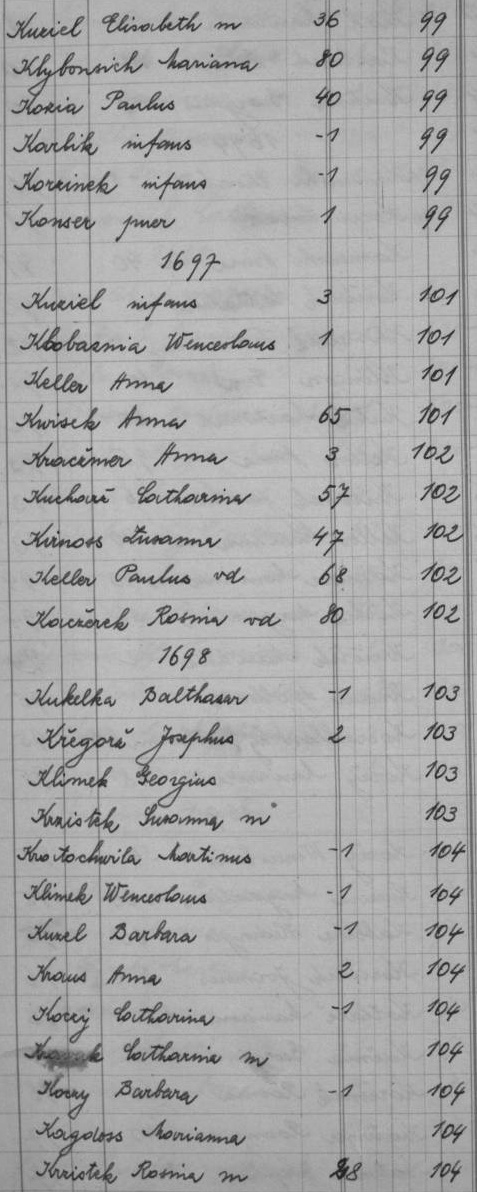 Kuziel Elisabeth m 36 99
Klybonsich Mariana 80 99
Kozia Paulus 40 99
Karlik infans -1 99
Korzinek infans -1 99
Konser puer 1 99
1697
Kuziel infans 3 101
Klobaznia Wenceslaus 1 101
Keller Anna 101
Kwisek Anna 65 101
Kraczmer Anna 3 102
Kucharž Catharina 57 102
Kirnoss Zusanna 47 102
Keller Paulus vd 68 102
Kaczerek Rosina vd 80 102
1698
Kukelka Balthasar -1 103
Křegorž Josephus 2 103
Klimek Georgius 103
Krzistek Susanna m 103
Kratochwila Martinus -1 104
Klimek Wenceslaus -1 104
Kuzel Barbara -1 104
Kraus Anna 2 104
Koczy Catharina -1 104
Catharina m 104
Koczy Barbara -1 104
Kagdoss Marianna 104
Krzistek Rosina m 28 104